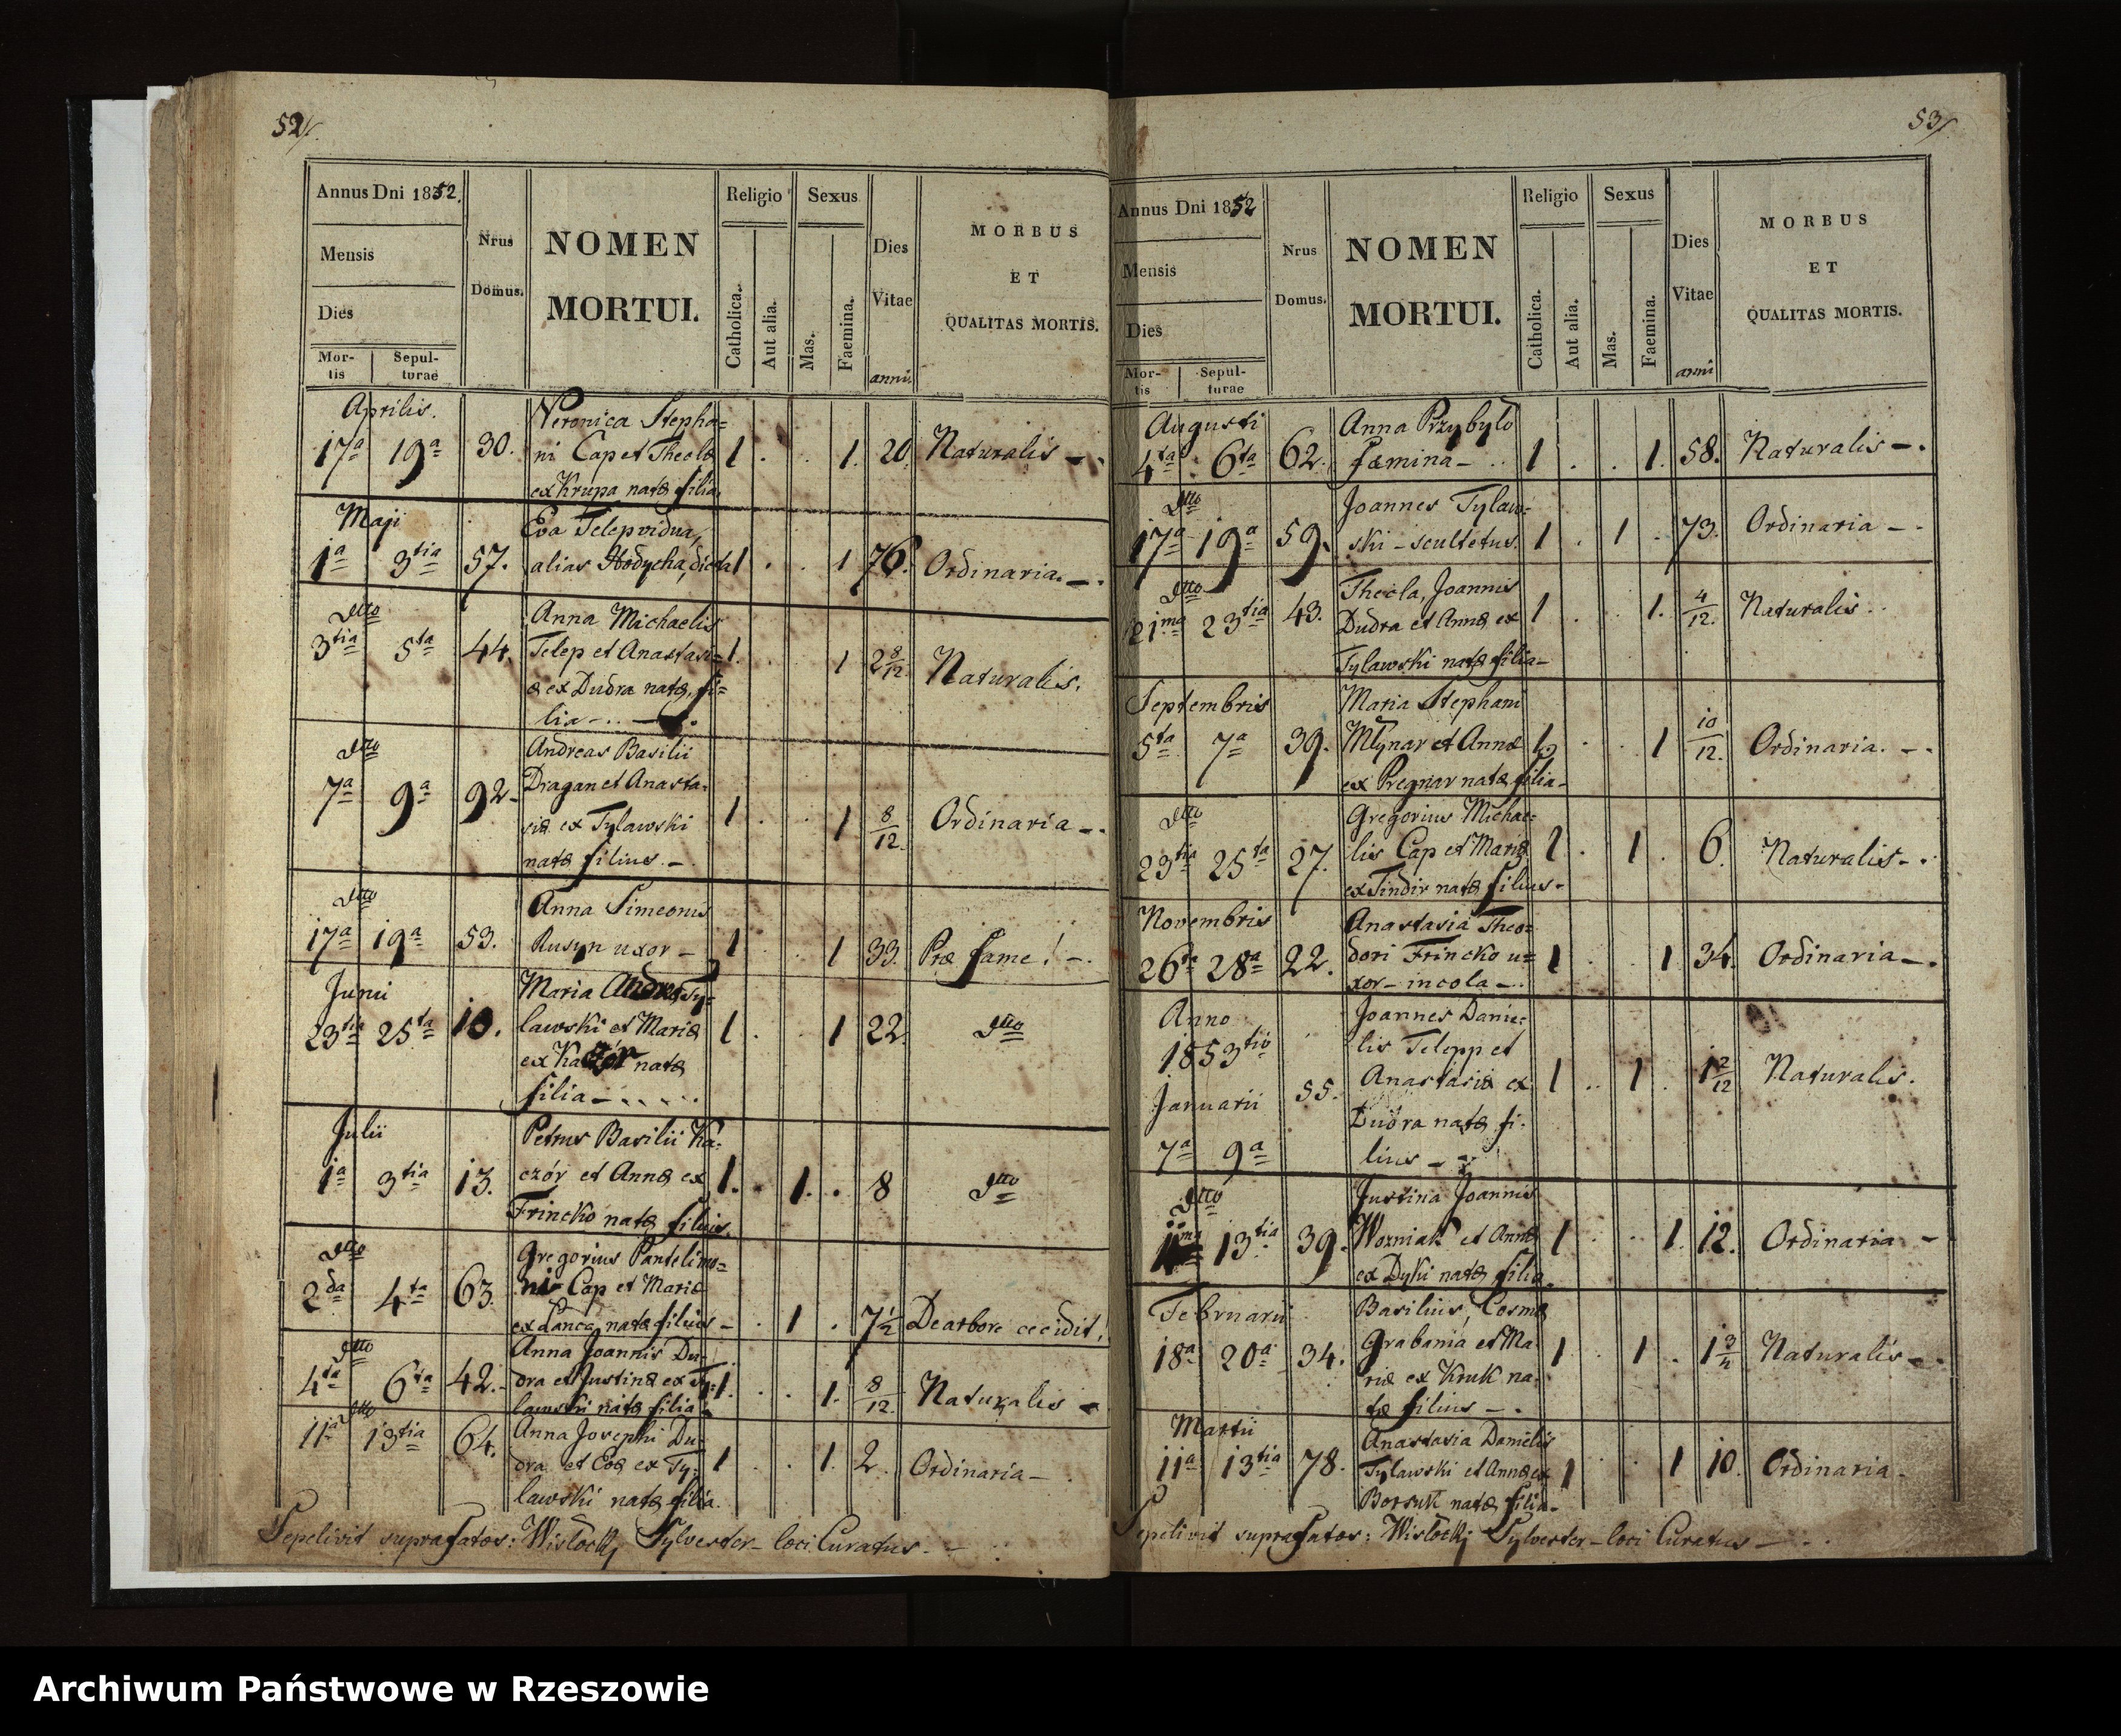 52/.
Annus Dni 1852.
Mensis
Dies
Mor-
tis
Sepul-
turae
Nrus
Domus.
NOMEN
MORTUI.
Religio
Catholica.
Aut alia.
Sexus
Mas.
Faemina.
Dies
Vitae
anni
MORBUS
ET
QUALITAS MORTIS.
Aprilis.
17a 19a 30.
Veronica Stepha=
ni Cap et Theclæ
ex Krupa natæ filia.
1 . . 1. 20. Naturalis -.
Maji
1a 3tia 57.
Eva Telep vidua,
alias Hodycha, dicta
1 . . 1 76. Ordinaria. -.
Dtto
3tia 5ta 44.
Anna Michaelis
Telep et Anastasi=
æ ex Dudra natæ, fi=
lia-..-
1. . . 1 2 8/12. Naturalis.
Dtto
7a 9a 92.
Andreas Basilii
Dragan et Anasta-
siæ ex Tylawski
natæ filius.-.
1 . . 1 8/12. Ordinaria -.
Dtto
17a 19a 53.
Anna Simeonis
Rusyn uxor -
1 . . 1 33. Præ fame! -.
Junii
23tia 25ta 10.
Maria Andreæ Ty=
lawski et Mariæ
ex Kaczór natæ
filia-.....
1 . . 1 22. Dtto
Julii
1a 3tia 13.
Petrus Basilii Ka-
czór et Annæ ex
Frincko natæ filius.
1. . 1. . 8 Dtto
Dtto
2da 4ta 63.
Gregorius Pantelimo=
ni Cap et Mariæ
ex Lanca natæ filius -
. 1 . 7 1/2 De arbore cecidit!
Dtto
4ta 6ta 42.
Anna Joannis Du-
dra et Justinæ ex Ty-
lawski natæ filia
1. . . 1. 8/12. Naturalis -
Dtto
11a 13tia 64.
Anna Josephi Du-
dra et Evæ ex Ty-
lawski natæ filia.
1 . . 1. 2. Ordinaria -.
Sepelivit suprafatos: Wisłocki Sylvester - loci Curatus. -
53/.
Annus Dni 1852
Mensis
Dies
Mor-
tis
Sepul-
turae
Nrus
Domus.
NOMEN
MORTUI.
Religio
Catholica.
Aut alia.
Sexus
Mas.
Faemina.
Dies
Vitae
anni
MORBUS
ET
QUALITAS MORTIS.
Augusti
4ta 6ta 62.
Anna Przybyło
fæmina - ..
1 . . 1. 58. Naturalis -.
Dtto
17a 19a 59.
Joannes Tylaw-
ski - scultetus.
1 . 1 . 73. Ordinaria -.
Dtto
21ma 23tia 43.
Thecla, Joannis
Dudra et Annæ ex
Tylawski natæ filia -
1 . . 1. 4/12. Naturalis..
Septembris
5ta 7a 39.
Maria Stephani
Młynar et Annæ
ex Pregnar natæ filia -
1 . . 1 10/12. Ordinaria. -.
Dtto
23tia 25ta 27.
Gregorius Michae-
lis Cap et Mariæ
ex Tindir natæ filius -
1 . 1 . 6. Naturalis -.
Novembris
26ta 28a 22.
Anastasia Theo=
dori Frincko u=
xor - incola -.
1 . . 1 34. Ordinaria -.
Anno
1853tio
Januarii
7a 9a 55.
Joannes Danie-
lis Telepp et
Anastasiæ ex
Dudra natæ fi-
lius -
1 .. 1 . 1 2/12 Naturalis.
Dtto
11ma 13tia 39.
Justina Joannis
Wozniak et Annæ
ex Dyki natæ filia.
1 . . 1. 12. Ordinaria -
Februarii
18a 20a 34.
Basilius, Cosmæ
Grabania et Ma-
riæ ex Kruk na-
tæ filius -.
1 . 1 . 1 3/4 Naturalis -.
Martii
11a 13tia 78.
Anastasia Danielis
Tylawski et Annæ ex
Borsuk natæ filia -
1 . . 1 10. Ordinaria -
Sepelivit suprafatos: Wisłocki Sylvester - loci Curatus -..
Archiwum Państwowe w Rzeszowie